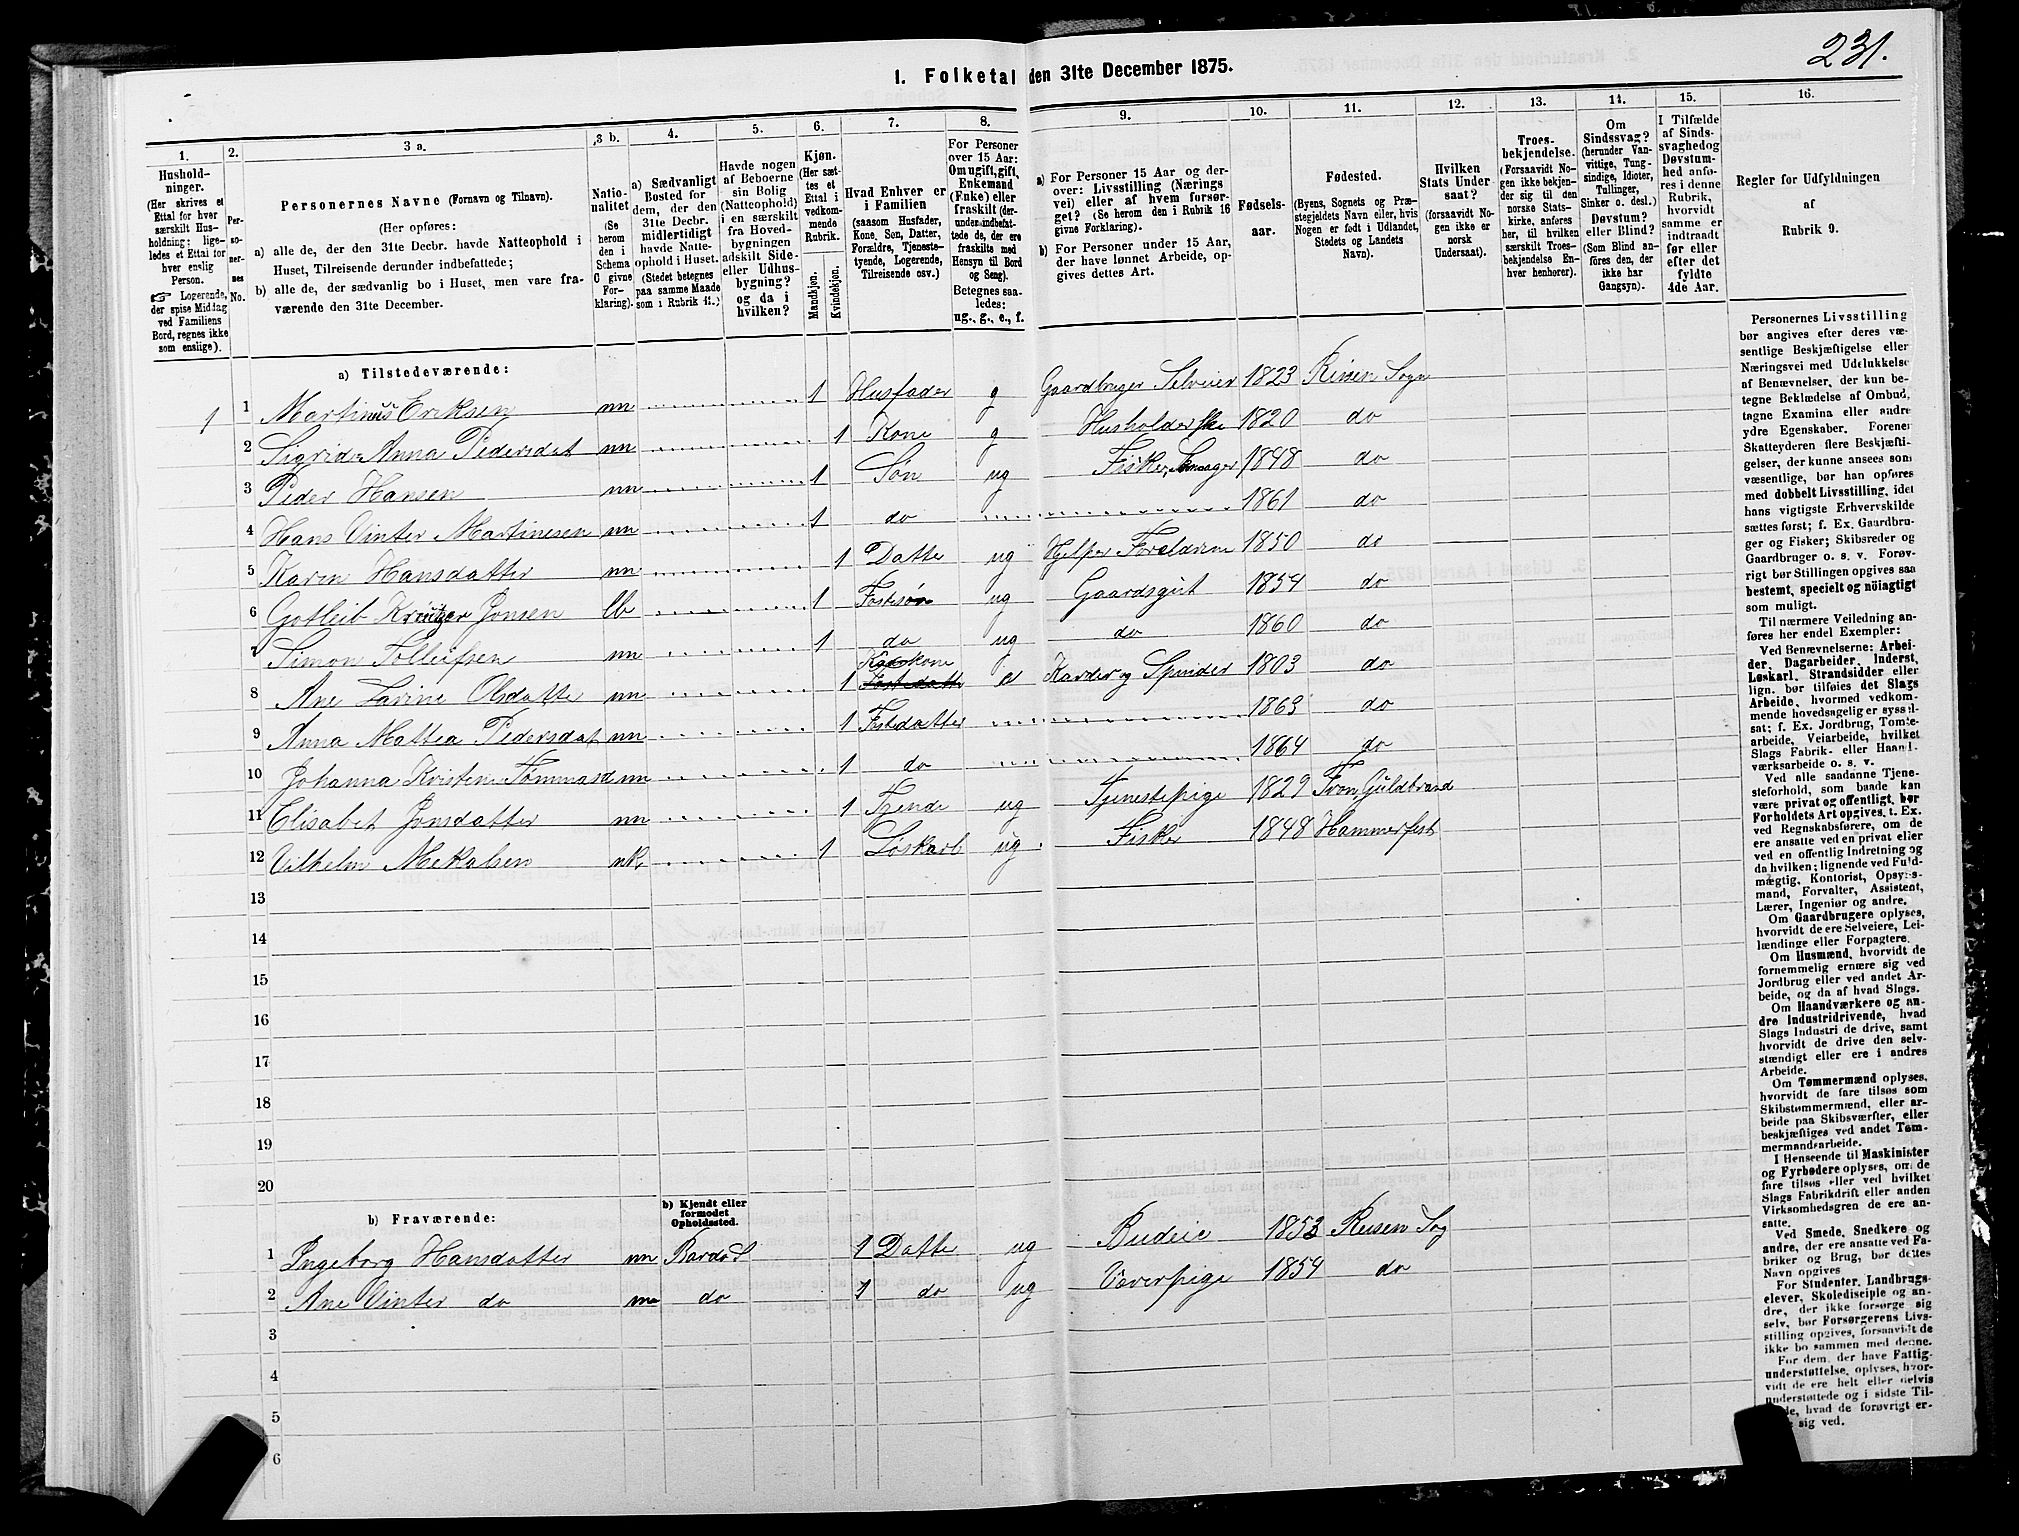 231.
1. Folketal den 31te December 1875.
1. 2. 3 a. 3 b. 4. 5. 6. 7. 8. 9. 10. 11. 12. 13. 14. 15. 16.
Hushold-
ninger.
(Her skrives et
Ettal for hver
særskilt Hus-
holdning; lige-
ledes et Ettal for
hver enslig
Person.
☞ Logerende,
der spise Middag
ved Familiens
Bord, regnes ikke
som enslige).
Per-
so-
ner-
nes
No.
Personernes Navne (Fornavn og Tilnavn).
(Her opføres:
a) alle de, der den 31te Decbr. havde Natteophold i
Huset, Tilreisende derunder indbefattede;
b) alle de, der sædvanlig bo i Huset, men vare fra-
værende den 31te December.
Natio-
nalitet
(Se
herom
den i
Schema
C givne
For-
klaring).
a) Sædvanligt
Bosted for
dem, der den
31te Decbr.
midlertidigt
havde Natte-
ophold i Huset.
(Stedet betegnes
paa samme Maade
som i Rubrik 11.)
Havde nogen
af Beboerne
sin Bolig
(Natteophold)
i en særskilt
fra Hoved-
bygningen
adskilt Side-
eller Udhus-
bygning?
og da i
hvilken?
Kjøn.
(Her sæt-
tes et
Ettal i
vedkom-
mende
Rubrik.
Mandkjøn.
Kvindekjøn.
Hvad Enhver er
i Familien
(saasom Husfader,
Kone, Søn, Datter,
Forældre, Tjeneste-
tyende, Logerende,
Tilreisende osv.)
For Personer
over 15 Aar:
Om ugift, gift,
Enkemand
(Enke) eller
fraskilt (der-
under indbefat-
tede de, der ere
fraskilte med
Hensyn til Bord
og Seng).
Betegnes saa-
ledes:
ug., g., e., f.
a) For Personer 15 Aar og der-
over: Livsstilling (Nærings-
vei) eller af hvem forsør-
get? (Se herom den i Rubrik 16
givne Forklaring).
b) For Personer under 15 Aar,
der have lønnet Arbeide, op-
gives dettes Art.
Fødsels-
aar.
Fødested.
(Byens, Sognets og Præ-
stegjeldets Navn eller, hvis
Nogen er født i Udlandet,
Stedets og Landets
Navn).
Hvilken
Stats Under-
saat?
(forsaavidt No-
gen ikke er
norsk
Undersaat).
Troes-
bekjendelse.
(Forsaavidt No-
gen ikke bekjen-
der sig til den
norske Stats-
kirke, anføres
her, til hvilken
særskilt Troes-
bekjendelse En-
hver henhører).
Om
Sindssvag?
(herunder Van-
vittige, Tung-
sindige, Idioter,
Tullinger,
Sinker o. desl.)
Døvstum?
eller Blind?
(Som Blind an-
føres den, der
ikke har
Gangsyn).
I Tilfælde
af Sinds-
svaghed og
Døvstum-
hed anfø-
res i denne
Rubrik,
hvorvidt
samme er
indtraadt
før eller
efter det
fyldte
4de Aar.
Regler for Udfyldningen
af
Rubrik 9.
a) Tilstedeværende:
1 1 Martinus Eriksen nn 1 Husfader g Gaardbruger Selveier 1823 Risen Sogn
2 Sigrid Anna Pedersdat nn 1 Kone g Husholderske 1820 do
3 Peder Hansen nn 1 Søn ug Fisker 1848 do
4 Hans Vinter Martinesen nn 1 do 1861 do
5 Karen Hansdatter nn 1 Datte ug Hjelper Forelderne 1850 do
6 Gotleib Kreutzer Jonsen lb 1 Fostesøn ug Gaardsgut 1854 do
7 Simon Tolleifsen nn 1 do ug do 1860 do
8 Ane Lavine Olsdatte nn 1 Kaarkone e Karder og Spinder 1803 do
9 Anna Mattea Pedersdat nn 1 Fostedatter 1863 do
10 Johanna Kristen Tømmasd nn 1 do 1864 do
11 Elisabet Jonsdatter nn 1 Tjende ug Tjenestepige 1829 Fron Guldbrand
12 Vilhelm Mekalsen nk 1 Løskarl ug Fisker 1848 Hammerfest
13
14
15
16
17
18
19
20
b) Fraværende:
b) Kjendt eller
formodet
Opholdssted.
1 Ingeborg Hansdatter nn Bardol 1 Datte ug Budeie 1853 Reisen Sog
2 Ane Vinter do nn do 1 do ug Væverpige 1854 do
3
4
5
6
Personernes Livsstilling
bør angives efter deres væ-
sentlige Beskjæftigelse eller
Næringsvei med Udelukkelse
af Benævnelser, der kun be-
tegne Beklædelse af Ombud,
tagne Examina eller andre
ydre Egenskaber. Forener
Skatteyderen flere Beskjæfti-
gelser, der kunne ansees som
væsentlige, bør han opføres
med dobbelt Livsstilling, idet
hans vigtigste Erhvervskilde
sættes først; f. Ex. Gaardbru-
ger og Fisker; Skibsreder og
Gaardbruger o. s. v. Forøv-
rigt bør Stillingen opgives saa
bestemt, specielt og nöiagtigt
som muligt.
Til nærmere Veiledning an-
føres her endel Exempler:
Ved Benævnelserne: Arbei-
der, Dagarbeider, Inderst,
Løskarl, Strandsidder eller
lign. bør tilføies det Slags
Arbeide, hvormed vedkom-
mende hovedsagelig er syssel-
sat; f. Ex. Jordbrug, Tomte-
arbeide, Veiarbeide, hvilket
Slags Fabrik- eller Haand-
værksarbeide o. s. v.
Ved alle saadanne Tjene-
steforhold, som baade kan
være privat og offentligt, bør
Forholdets Art opgives, t. Ex.
ved Regnskabsførere, om de
ere ansatte ved en privat eller
ved en offentlig Indretning og
da hvilken; lignende ved Fuld-
mægtig, Kontorist, Opsyns-
mand, Forvalter, Assistent,
Lærer, Ingeniør og andre.
Om Gaardbrugere oplyses,
hvorvidt de ere Selveiere, Lei-
lændinge eller Forpagtere.
Om Husmænd, hvorvidt de
fornemmelig ernære sig ved
Jordbrug eller ved andet Ar-
beide, og da af hvad Slags.
Om Haandværkere og an-
dre Industridrivende, hvad
Slags Industri de drive, samt
hvorvidt de drive den selv-
stændigt eller ere i andres
Arbeide.
Om Tømmermænd oplyses,
hvorvidt de fare tilsøs som
Skibstømmermænd, eller ar-
beide paa Skibsværfter, eller
beskjæftiges ved andet Tøm-
mermandsarbeide.
I Henseende til Maskinister
og Fyrbødere oplyses, om de
fare tilsøs eller ved hvilket
Slags Fabrikdrift eller anden
Virksomhedsgren de ere an-
satte.
Ved Smede, Snedkere og
andre, der ere ansatte ved Fa-
briker og Brug, bør dettes
Navn opgives
For Studenter, Landbrugs-
elever, Skoledisciple og an-
dre, der ikke forsørge sig
selv, bør Forsørgerens Livs-
stilling opgives, forsaavidt de
ikke bo sammen med denne.
For dem, der have Fattig-
understøttelse, oplyses, hvor-
vidt de ere helt eller delvis
understøttede og i sidste Til-
hvad de forøvrigt er-
sig ved.